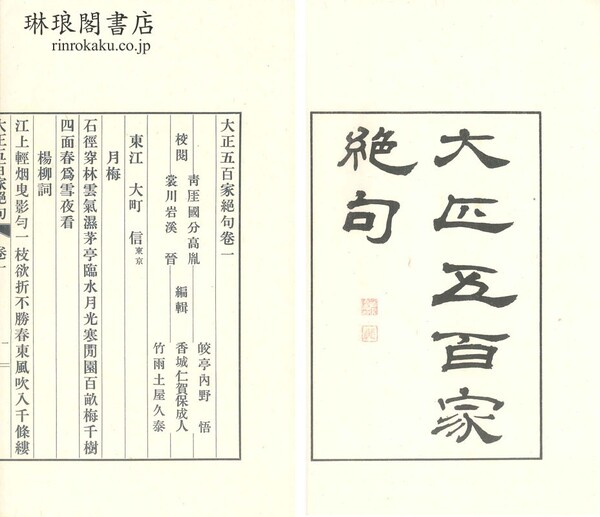 琳琅閣書店
rinrokaku.co.jp
大正五百家
絶句
大正五百家絶句卷一
校閲
靑厓國分高胤
裳川岩溪 晉
編輯
皎亭內野 悟
香城仁賀保成人
竹雨土屋久泰
東江 大町 信 東京
月梅
石徑穿林雲氣濕茅亭臨水月光寒閒園百畝梅千樹
四面春爲雪夜看
楊柳詞
江上輕烟曳影勻一枝欲折不勝春東風吹入千條縷
大正五百家絶句 卷一 一